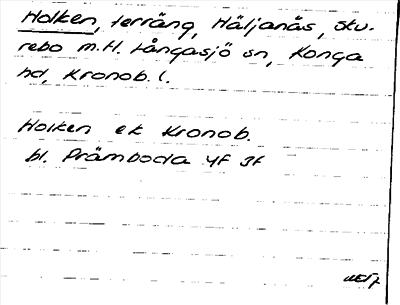 Holken, terräng, Häljanäs, Sku-
rebo m.H. Långasjö sn, Konga
hd, Kronob. l.
Holken ek Kronob.
bl. Främboda 4f 3f